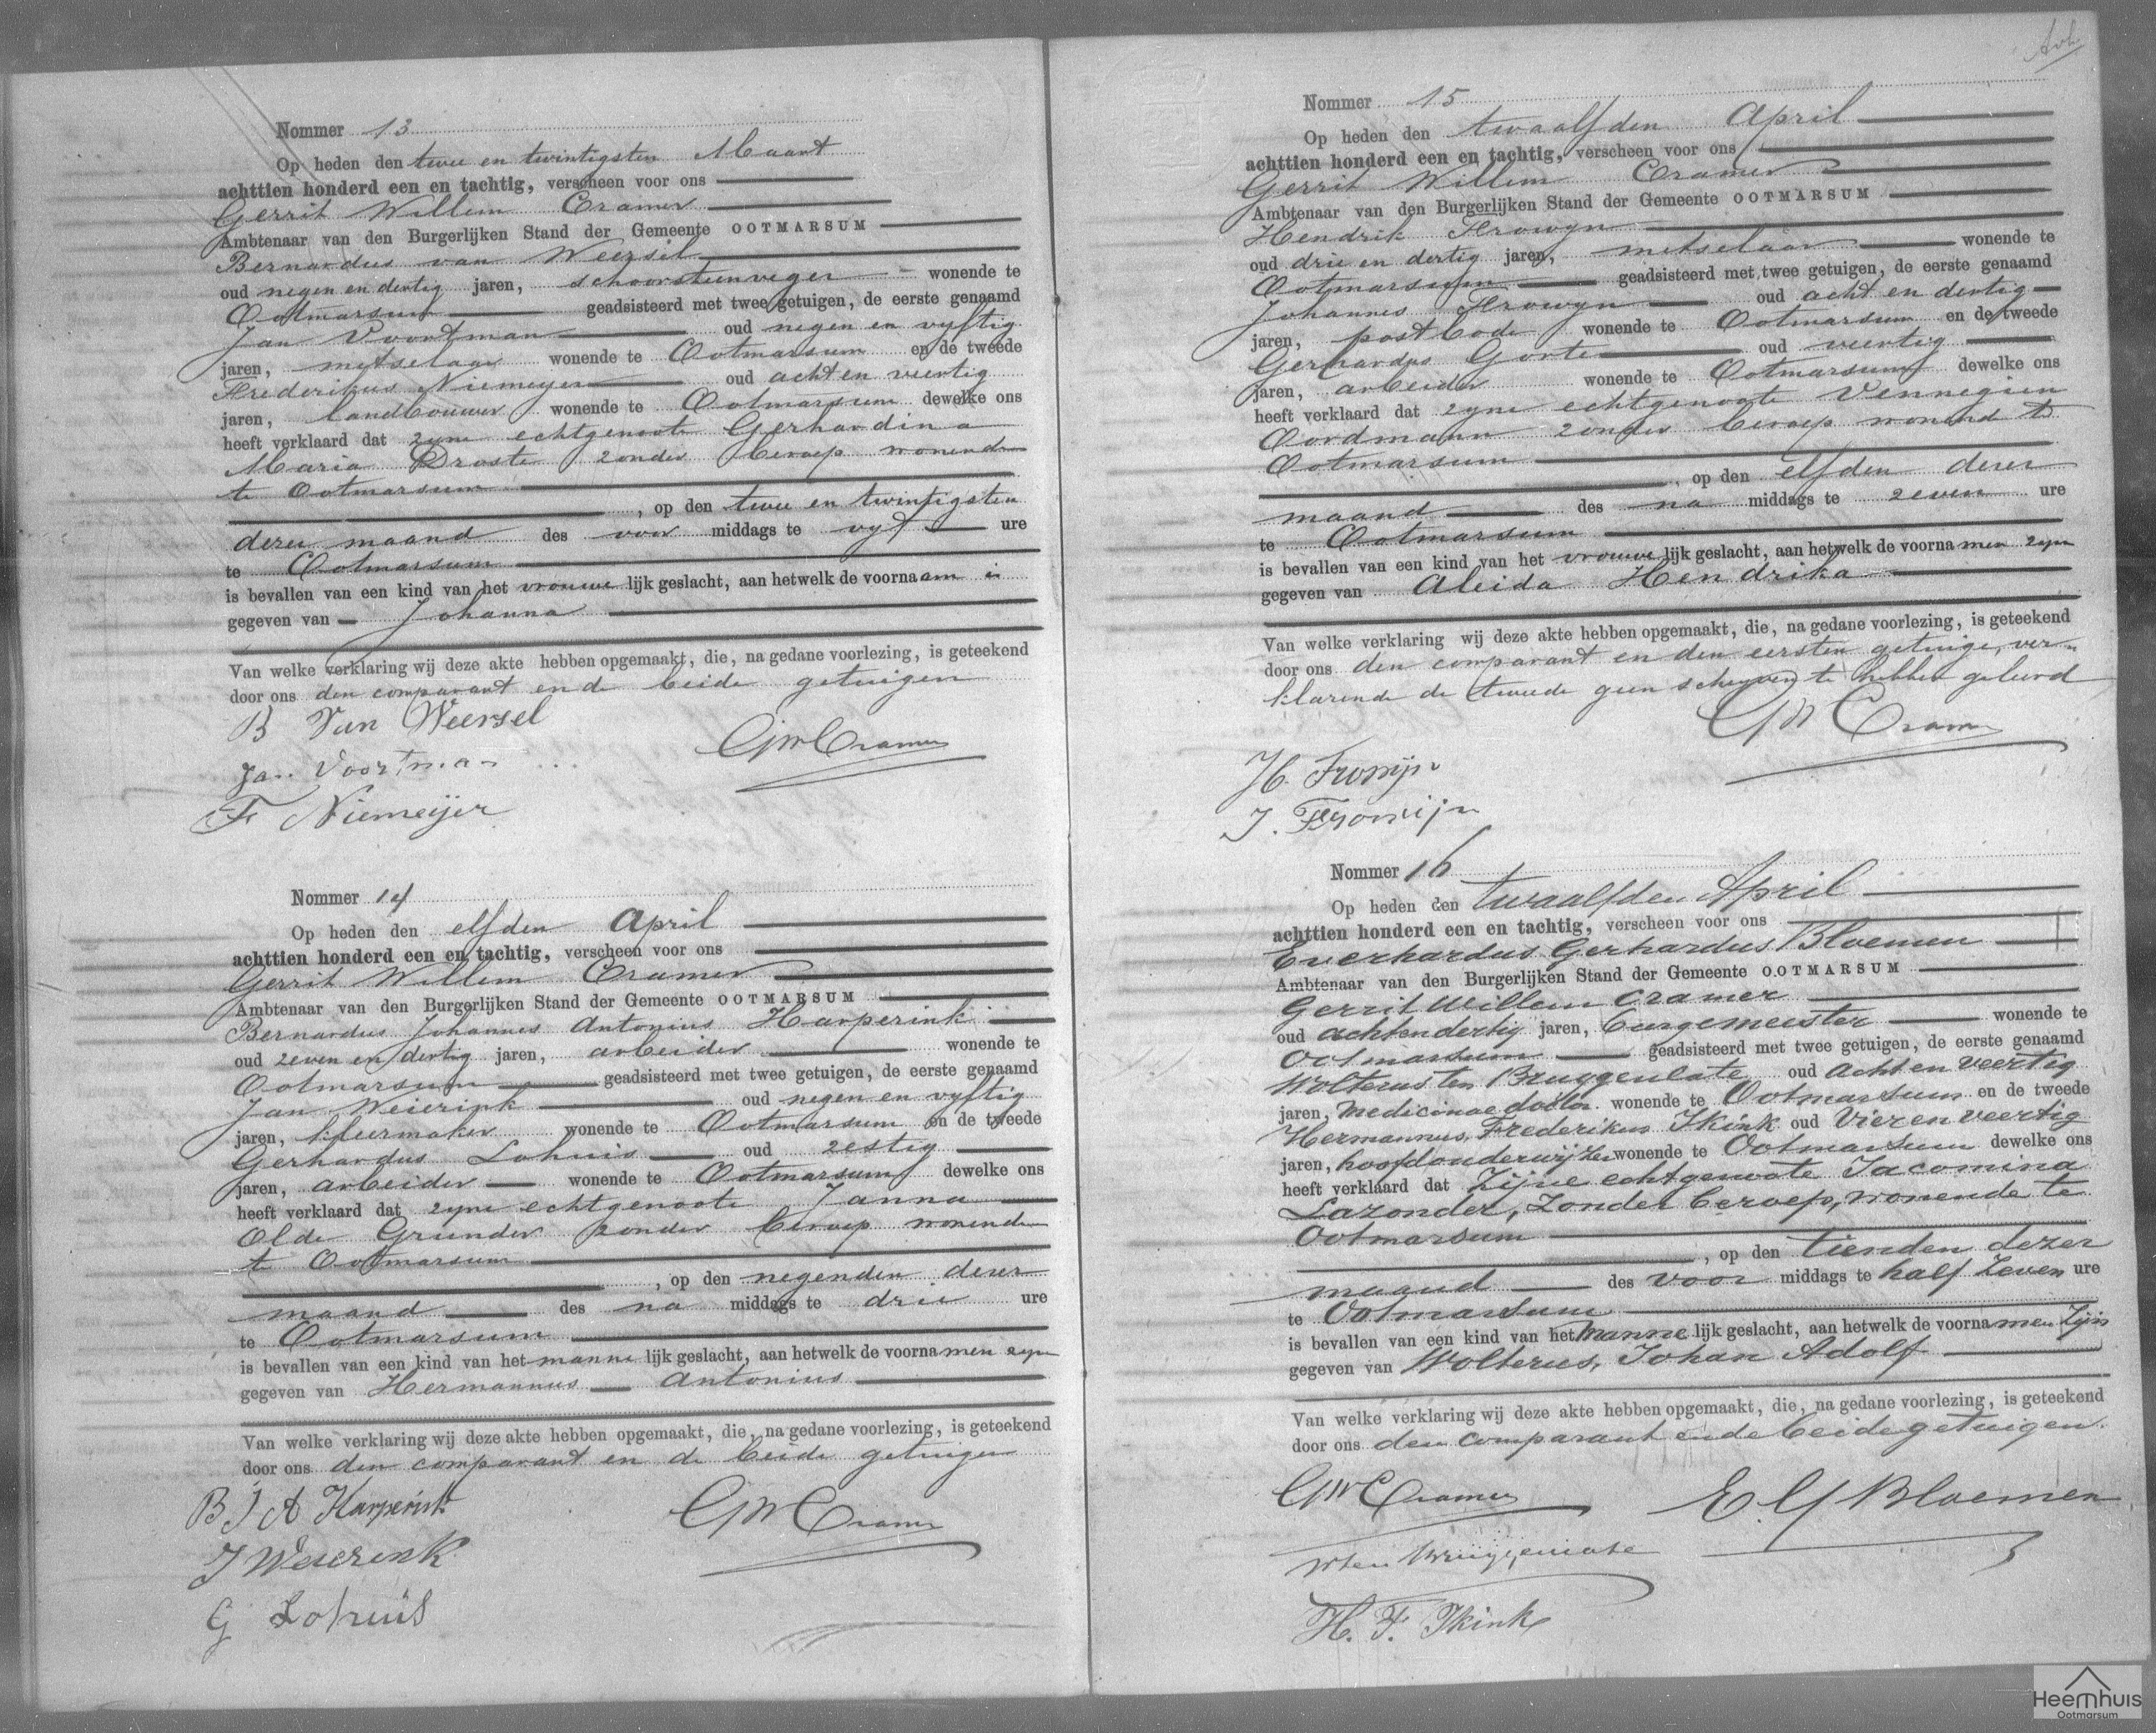 Nommer 13
Op heden den twee en twintigsten Maart
achttien honderd een en tachtig, verscheen voor ons
Gerrit Willem Cramer
Ambtenaar van den Burgerlijken Stand der Gemeente OOTMARSUM
Bernardus van Weersel
oud negen en dertig jaren, schoorsteenveger wonende te
Ootmarsum geadsisteerd met twee getuigen, de eerste genaamd
Jan Voortman oud negen en vyftig
jaren, metselaar wonende te Ootmarsum en de tweede
Frederikus Niemeyer oud acht en veertig
jaren, landbouwer wonende te Ootmarsum dewelke ons
heeft verklaard dat zyne echtgenoote Gerhardina
Maria Droste zonder beroep wonende
te Ootmarsum
, op den twee en twintigsten
dezer maand des voor middags te vyf ure
te Ootmarsum
is bevallen van een kind van het vrouwe lijk geslacht, aan hetwelk de voornaam is
gegeven van Johanna
Van welke verklaring wij deze akte hebben opgemaakt, die, na gedane voorlezing, is geteekend
door ons den comparant en de beide getuigen
B Van Weersel
GWCramer
Jan Voortman
F Niemeijer
Nommer 14
Op heden den elfden April
achttien honderd een en tachtig, verscheen voor ons
Gerrit Willem Cramer
Ambtenaar van den Burgerlijken Stand der Gemeente OOTMARSUM
Bernardus Johannes Antonius Harperink
oud zeven en dertig jaren, arbeider wonende te
Ootmarsum geadsisteerd met twee getuigen, de eerste genaamd
Jan Weierink oud negen en vyftig
jaren, kleermaker wonende te Ootmarsum en de tweede
Gerhardus Lohuis oud zestig
jaren, arbeider wonende te Ootmarsum dewelke ons
heeft verklaard dat zyne echtgenoote Janna
Olde Grunder zonder beroep wonende
te Ootmarsum
, op den negenden dezer
maand des na middags te drie ure
te Ootmarsum
is bevallen van een kind van het manne lijk geslacht, aan hetwelk de voornamen zyn
gegeven van Hermannus Antonius
Van welke verklaring wij deze akte hebben opgemaakt, die, na gedane voorlezing, is geteekend
door ons den comparant en de beide getuigen
B J A Harperink
GWCramer
J Weierink
G Lohuis
Nommer 15
Op heden den twaalfden April
achttien honderd een en tachtig, verscheen voor ons
Gerrit Willem Cramer
Ambtenaar van den Burgerlijken Stand der Gemeente OOTMARSUM
Hendrik Frowyn
oud drie en dertig jaren, metselaar wonende te
Ootmarsum geadsisteerd met twee getuigen, de eerste genaamd
Johannes Frowyn oud acht en dertig
jaren, postbode wonende te Ootmarsum en de tweede
Gerhardus Gorte oud veertig
jaren, arbeider wonende te Ootmarsum dewelke ons
heeft verklaard dat zyne echtgenoote Vennegien
Oordmann zonder beroep wonend te
Ootmarsum
, op den elfden dezer
maand des na middags te zeven ure
te Ootmarsum
is bevallen van een kind van het vrouwe lijk geslacht, aan hetwelk de voornamen zyn
gegeven van Aleida Hendrika
Van welke verklaring wij deze akte hebben opgemaakt, die, na gedane voorlezing, is geteekend
door ons den comparant en den eersten getuige, ver-
klarende de tweede geen schryven te hebben geleerd
GW Cramer
H. Frowijn
J. Frowijn
Nommer 16
Op heden den twaalfden April
achttien honderd een en tachtig, verscheen voor ons
Everhardus Gerhardus Bloemen
Ambtenaar van den Burgerlijken Stand der Gemeente OOTMARSUM
Gerrit Willem Cramer
oud achtendertig jaren, burgemeester wonende te
Ootmarsum geadsisteerd met twee getuigen, de eerste genaamd
Wolterus ten Bruggencate oud acht en veertig
jaren, Medicinae doctor wonende te Ootmarsum en de tweede
Hermannus Frederikus Ikink oud Vier en veertig
jaren, hoofdonderwijzer wonende te Ootmarsum dewelke ons
heeft verklaard dat zijne echtgenoote Jacomina
Lazonder, zonder beroep, wonende te
Ootmarsum
, op den tienden dezer
maand des voor middags te half zeven ure
te Ootmarsum
is bevallen van een kind van het manne lijk geslacht, aan hetwelk de voornamen zijn
gegeven van Wolterus, Johan Adolf
Van welke verklaring wij deze akte hebben opgemaakt, die, na gedane voorlezing, is geteekend
door ons den comparant en de beide getuigen.
GWCramer
E. G Bloemen
W ten Bruggencate
H. F. Ikink
Heemhuis
Ootmarsum